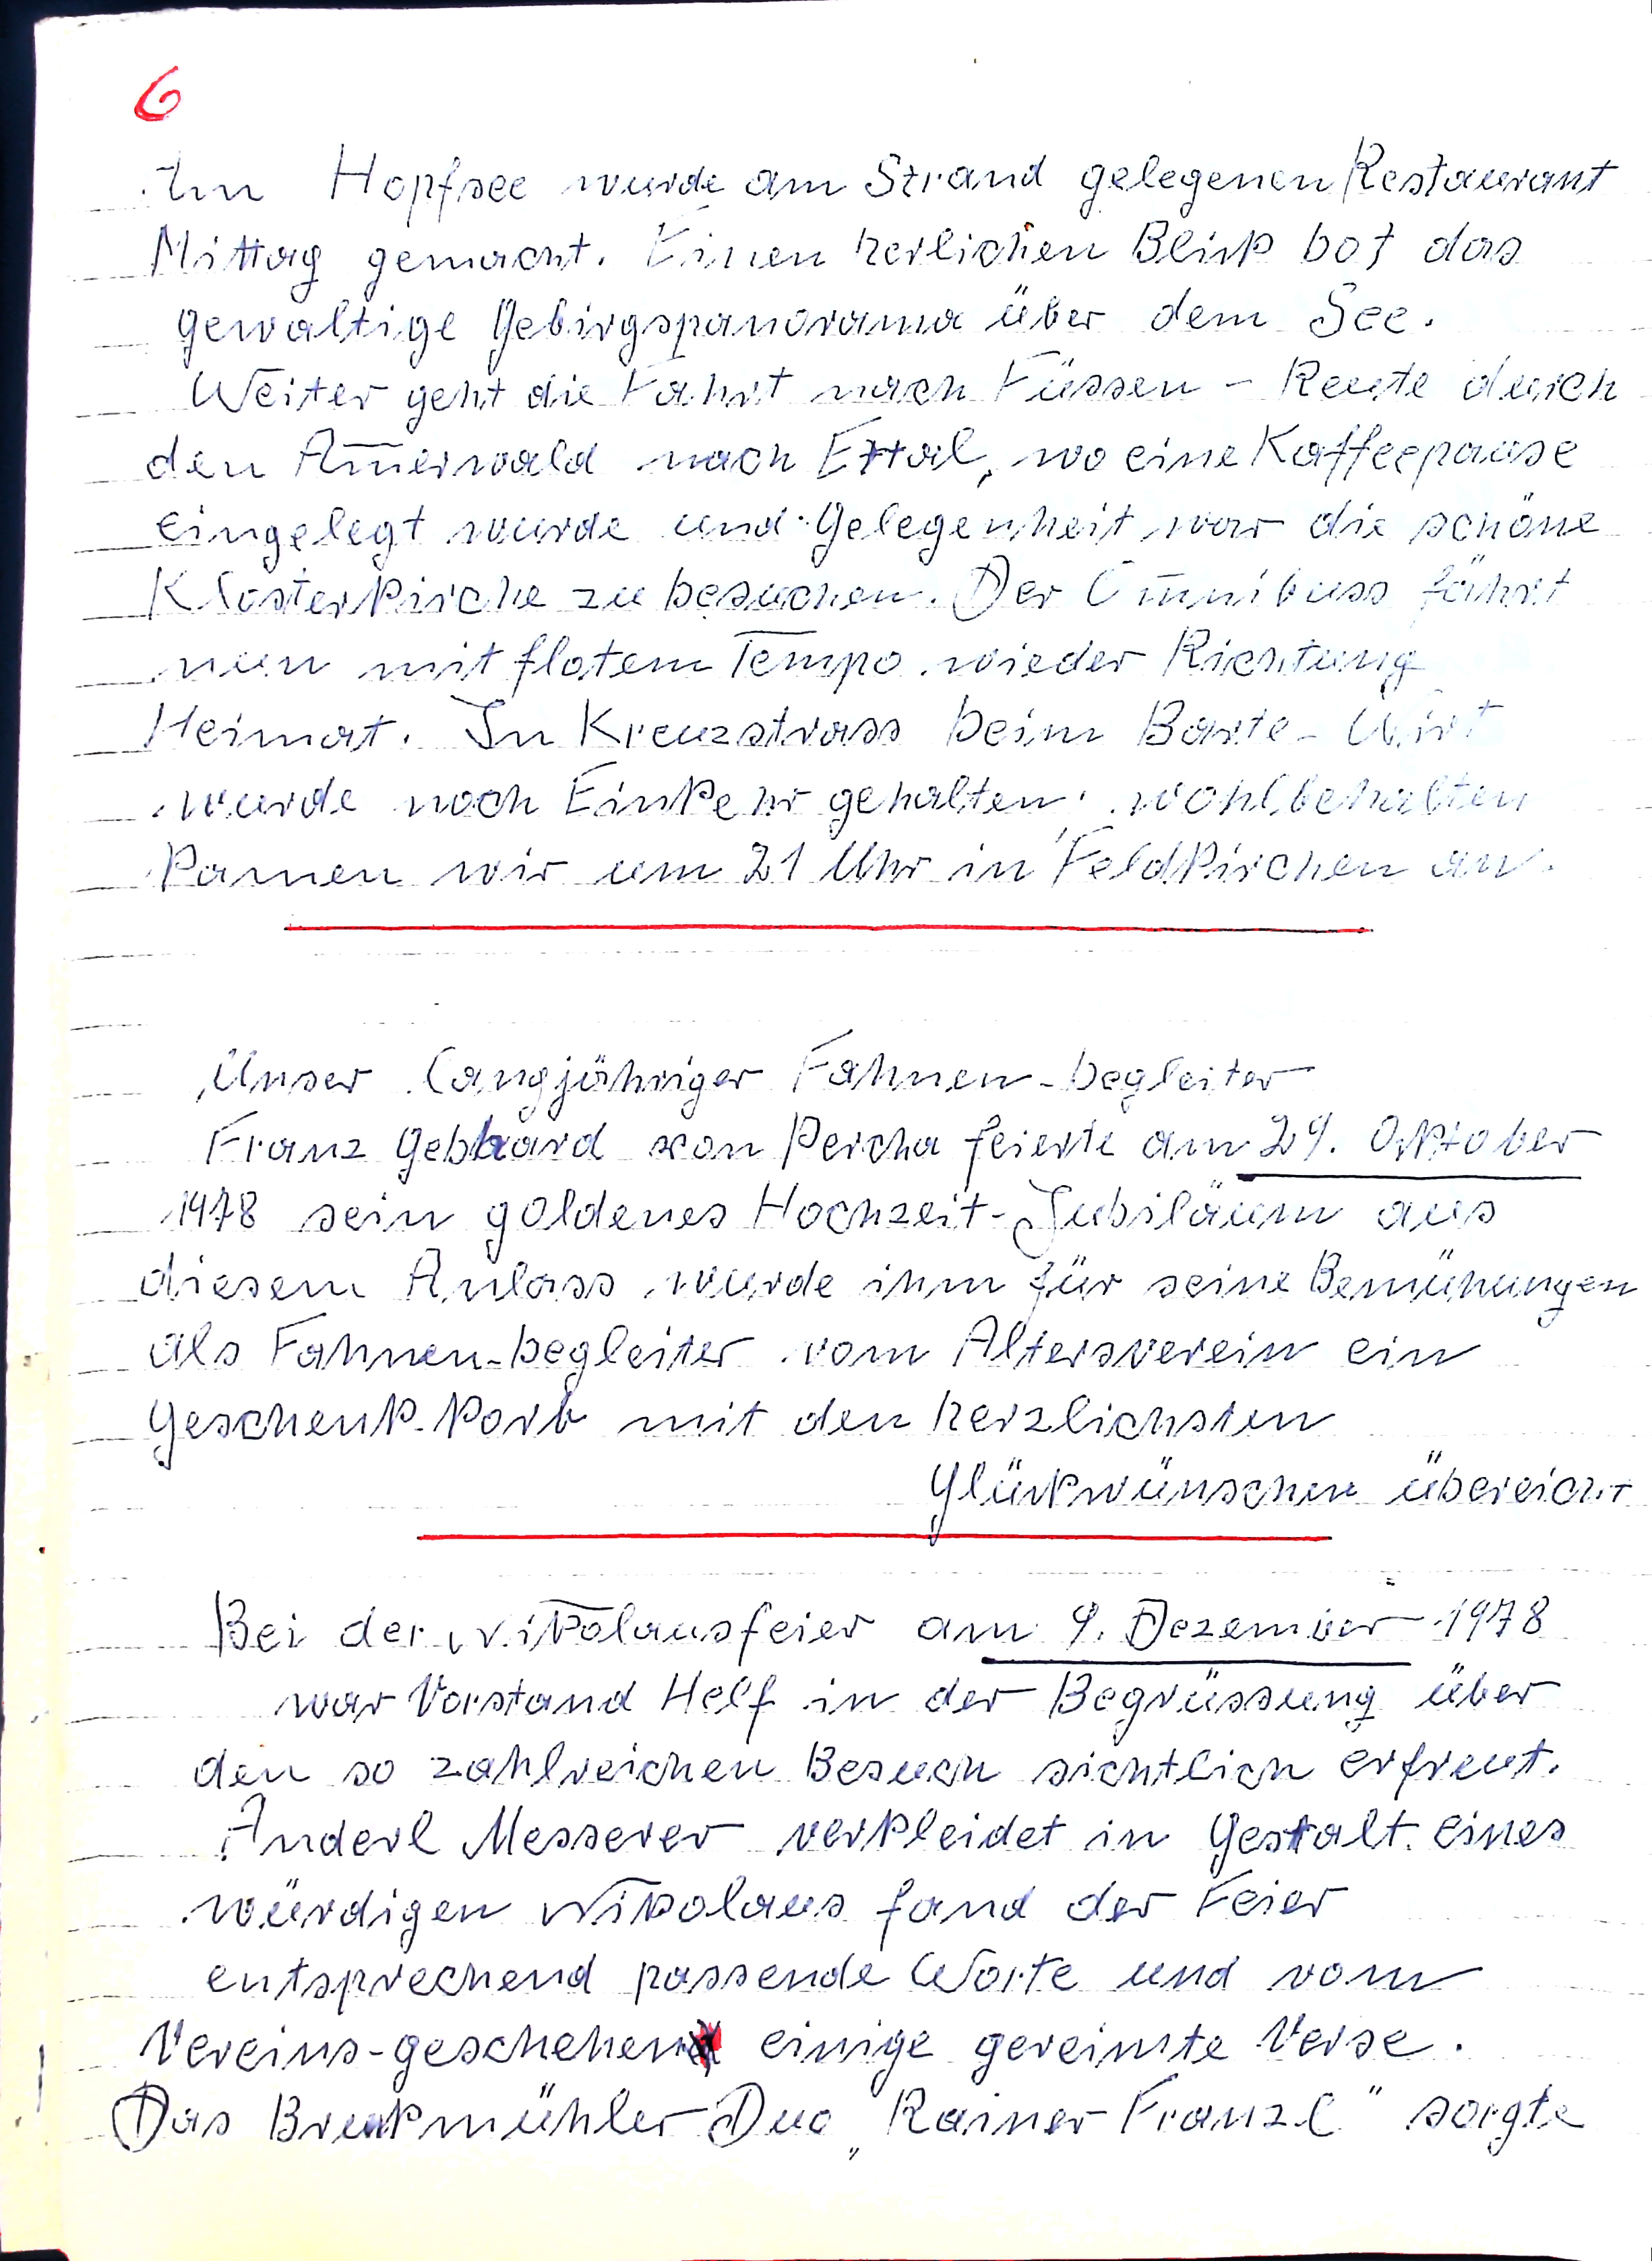 6
Im Hopfsee wurde am Strand gelegenen Restaurant
Mittag gemacht. Einen herlichen Blik bot das
gewaltige Gebirgspanorama über dem See.
Weiter geht die Fahrt nach Füssen - Reute durch
den Am̅erwald nach Ettal, wo eine Kaffeepause
eingelegt wurde und Gelegenheit war die schöne
Klosterkirche zu besuchen. Der Om̅nibuss fährt
nun mit flotem Tempo wieder Richtung
Heimat. In Kreuzstrass beim Barte-Wirt
wurde noch Einkehr gehalten, wohlbehalten
kamen wir um 21 Uhr in Feldkirchen an.
Unser langjähriger Fahnen-begleiter
Franz Gebhard von Percha feierte am 29. Oktober
1978 sein goldenes Hochzeit-Jubiläum aus
diesem Anlass wurde ihm für seine Bemühungen
als Fahnen-begleiter vom Altersverein ein
Geschenk-korb mit den herzlichsten
Glükwünschen übereicht
Bei der Nikolausfeier am 9. Dezember 1978
war Vorstand Helf in der Begrüssung über
den so zahlreichen Besuch sichtlich erfreut.
Anderl Messerer verkleidet in Gestalt eines
würdigen Nikolaus fand der Feier
entsprechend passende Worte und vom
Vereins-geschehen einige gereimte Verse.
Das Brukmühler Duo „Rainer Franzl" sorgte